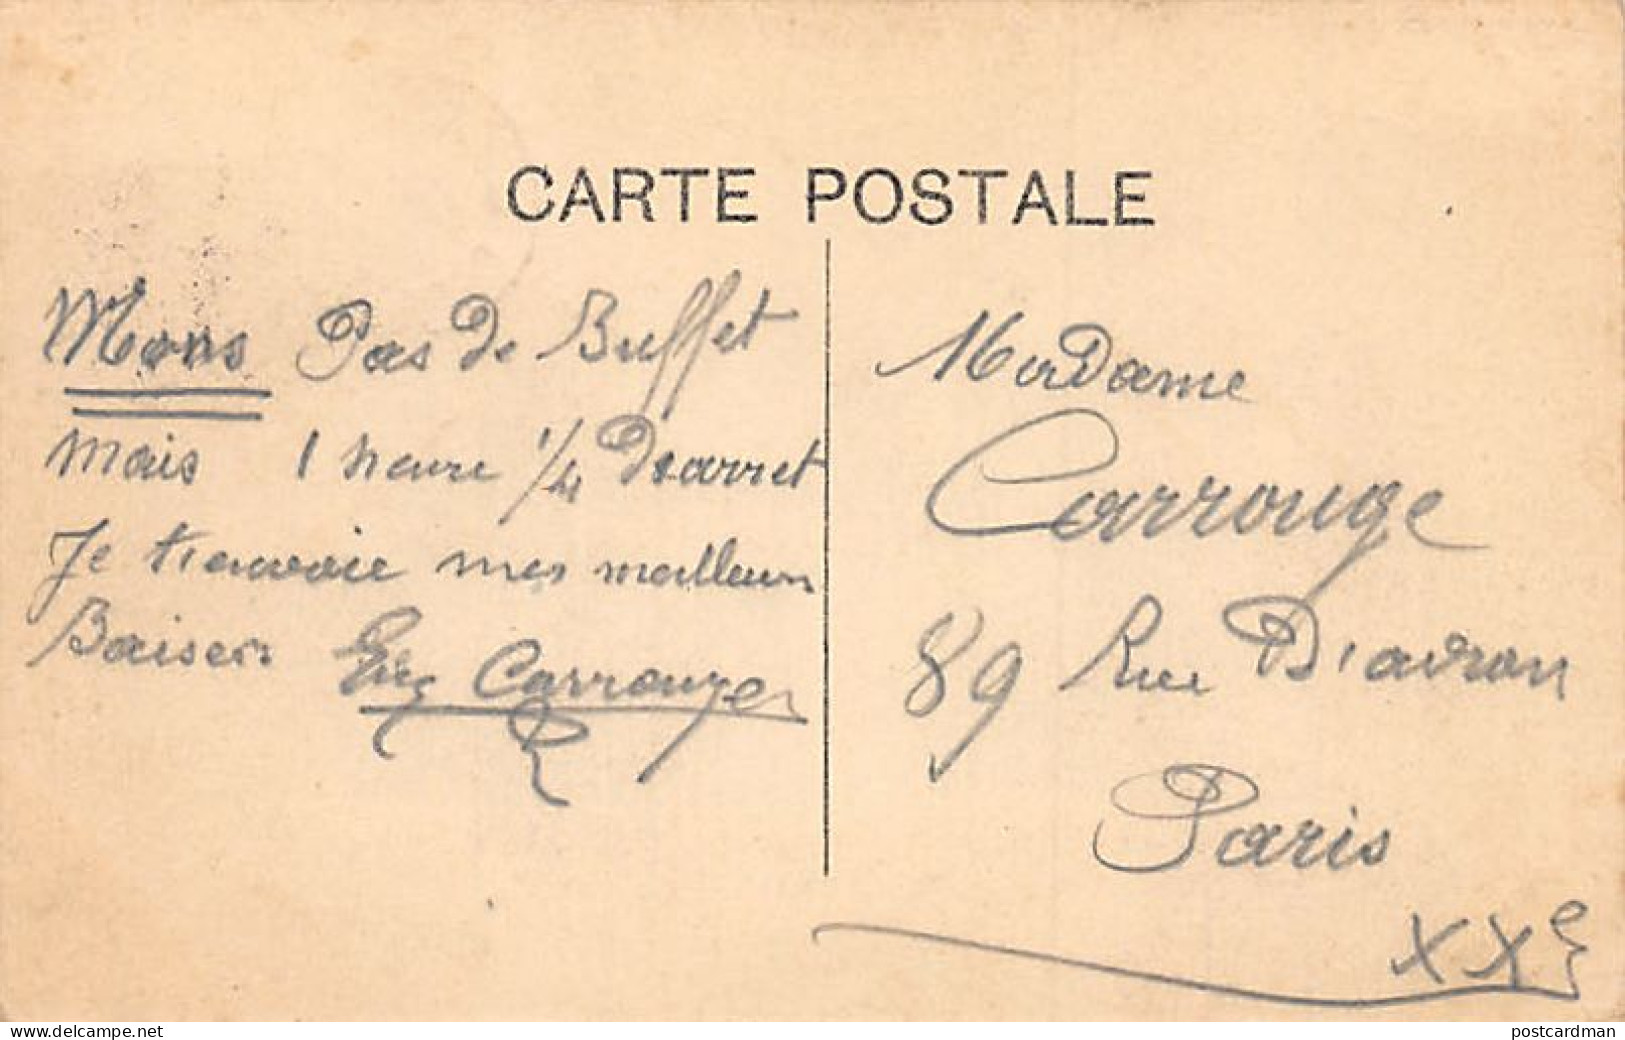 CARTE POSTALE
Mons Pas de Buffet
mais 1 heure 1/4 D'arret
Je t'envoie mes meilleurs
Baisers Eug Carrouge
Madame
Carrouge
89 Rue D'avron
Paris
XXe
www.delcampe.net
postcardman